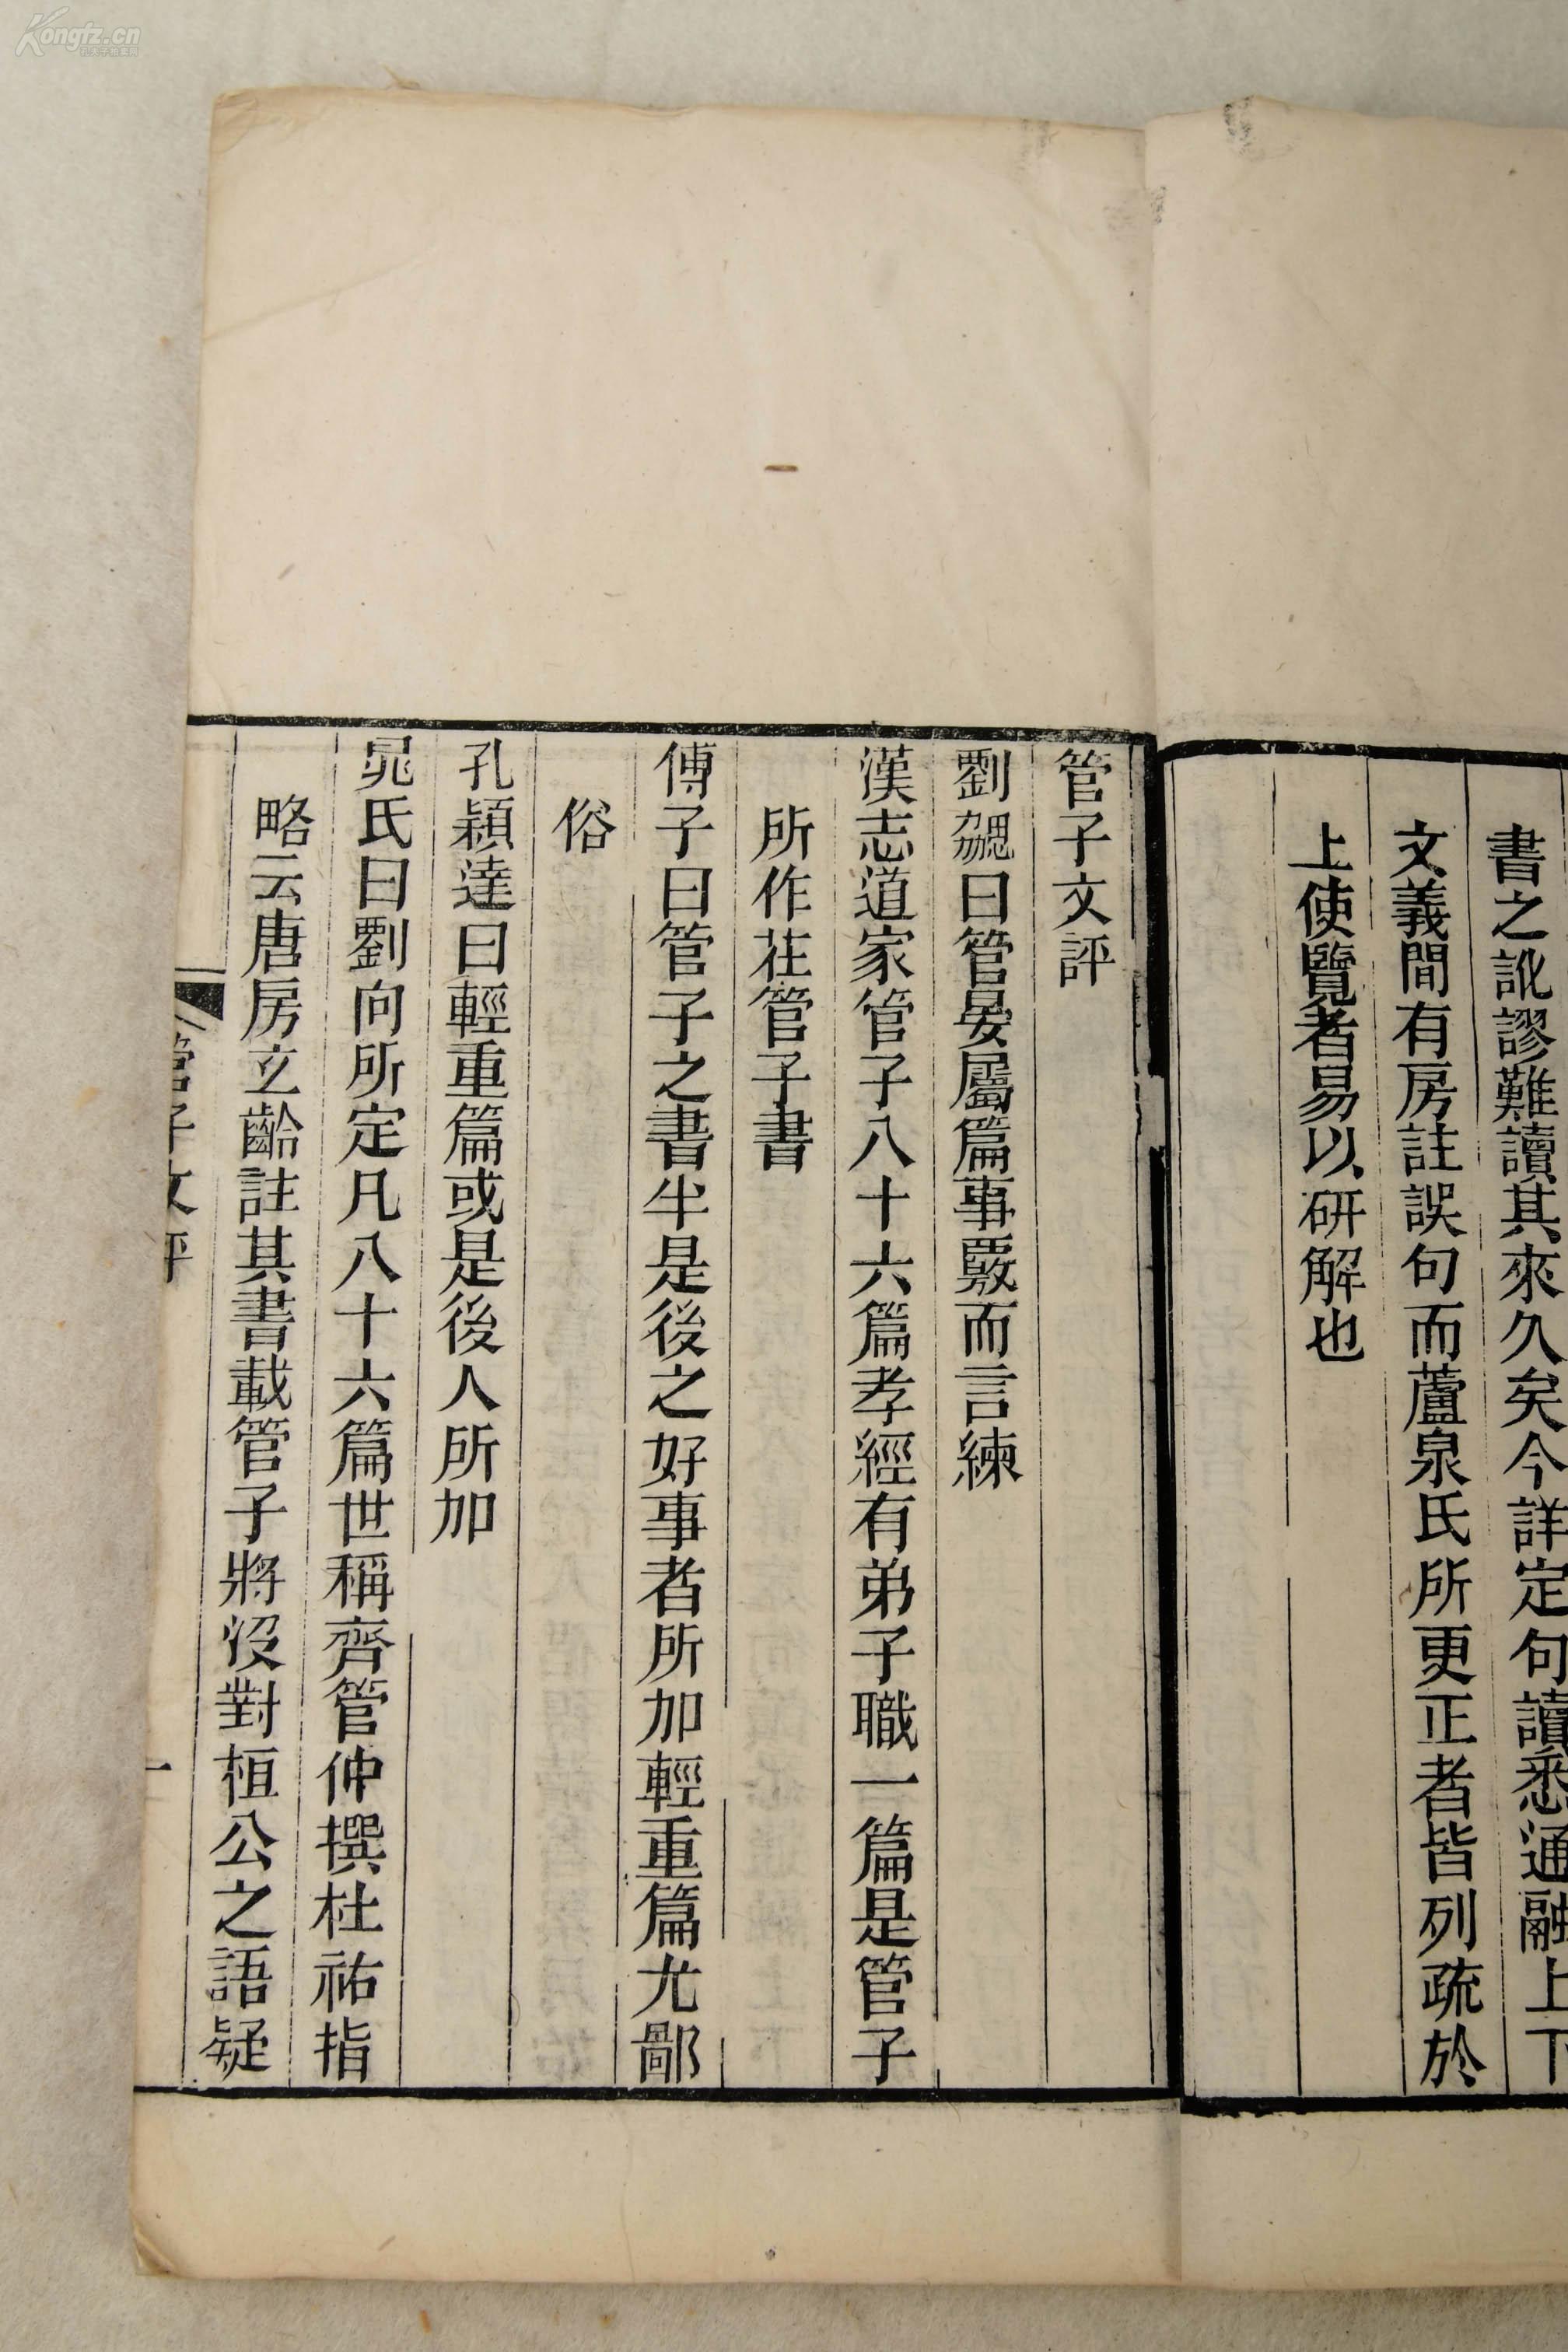 Kongfz.cn
書之訛謬難讀其來久矣今詳定句讀悉通融上下
文義間有房註誤句而蘆泉氏所更正者皆列疏於
上使覽者易以研解也
管子文評
劉勰曰管晏屬篇事覈而言練
漢志道家管子八十六篇孝經有弟子職一篇是管子
所作在管子書
傅子曰管子之書半是後之好事者所加輕重篇尤鄙
俗
孔穎達曰輕重篇或是後人所加
晁氏曰劉向所定凡八十六篇世稱齊管仲撰杜祐指
略云唐房玄齡註其書載管子將沒對桓公之語疑
管子文評
一